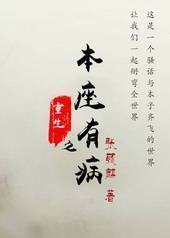 这是一个骚话与本子齐飞的世界
让我们一起掰弯全世界
重生
之
本座有病
张 著